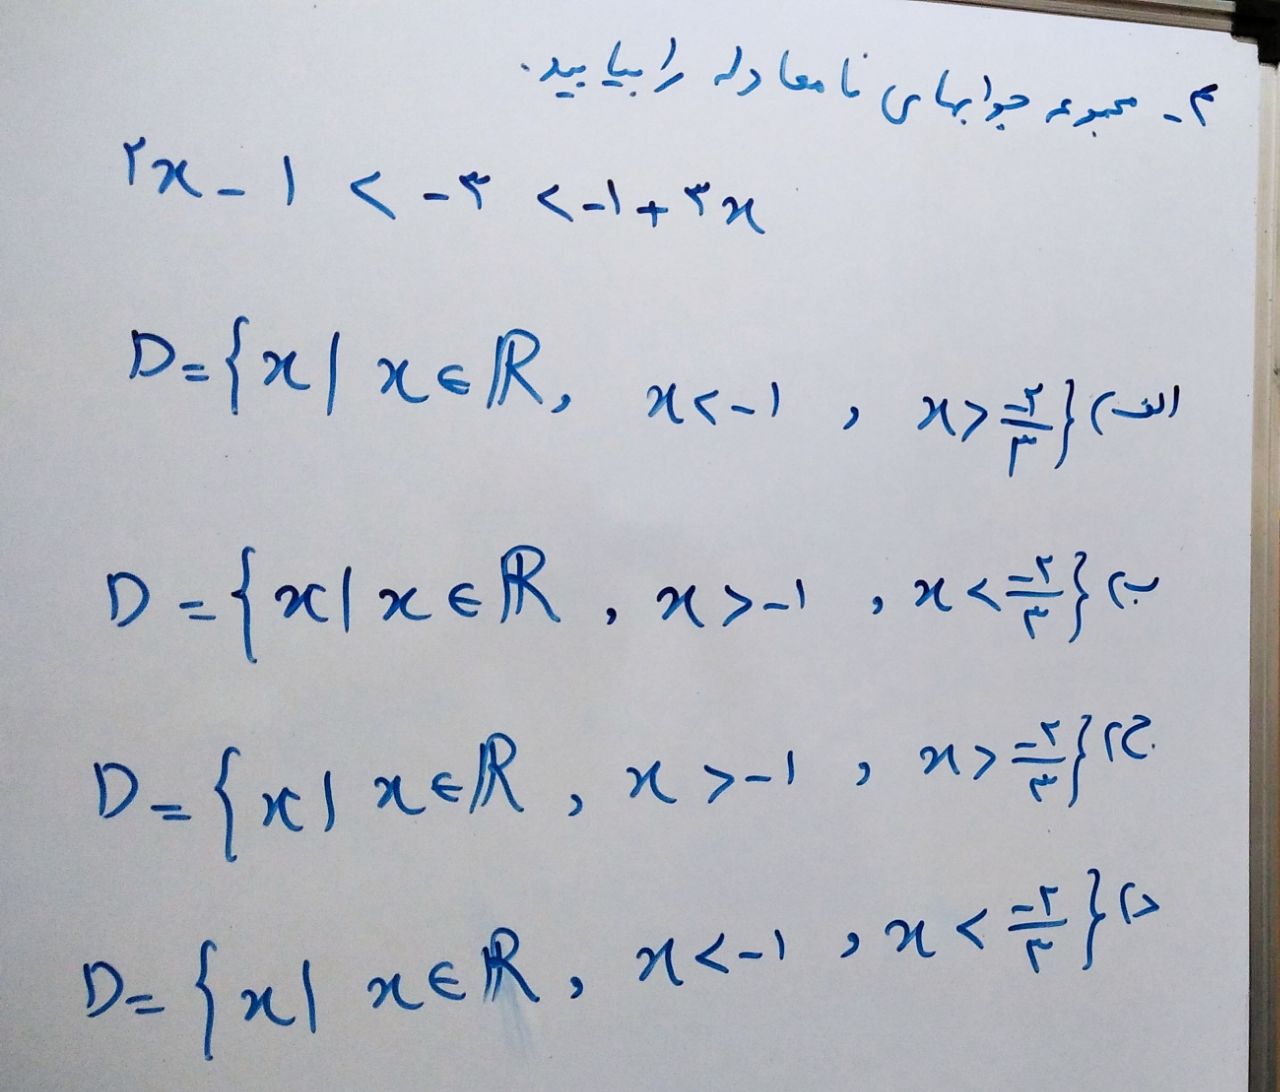 ۴- مجموعه جوابهای نامعادله را بیابید.
۲x - ۱ < -۳ < -۱ + ۳x
الف) D = {x | x ∈ ℝ, x < -۱ , x > -۲/۳}
ب) D = {x | x ∈ ℝ , x > -۱ , x < -۲/۳}
ج) D = {x | x ∈ ℝ , x > -۱ , x > -۲/۳}
د) D = {x | x ∈ ℝ , x < -۱ , x < -۲/۳}